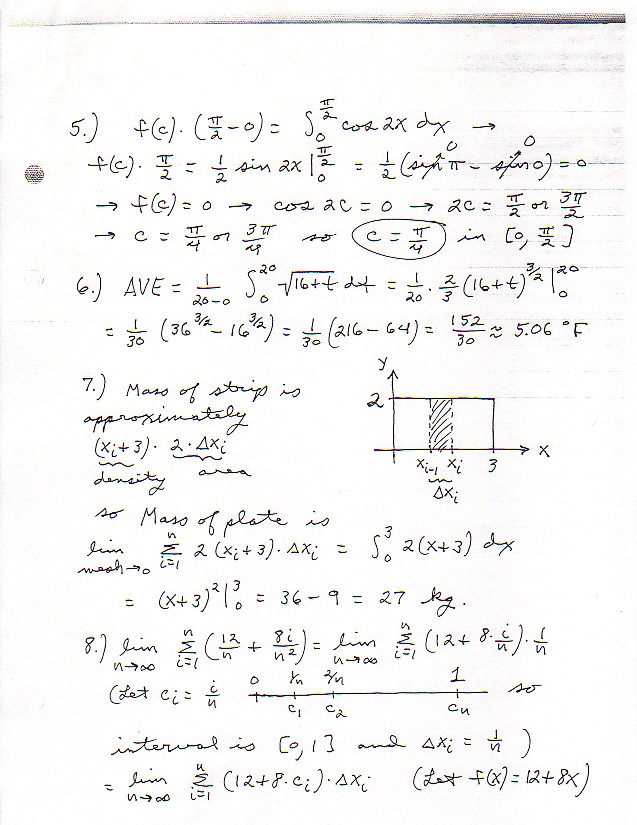 5.) f(c)·(π/2 − 0) = ∫₀^{π/2} cos 2x dx →
f(c)·π/2 = 1/2 sin 2x |₀^{π/2} = 1/2 (sin π⁰ − sin 0⁰) = 0
→ f(c) = 0 → cos 2c = 0 → 2c = π/2 or 3π/2
→ c = π/4 or 3π/4 so c = π/4 in [0, π/2]
6.) AVE = 1/(20−0) ∫₀^{20} √(16+t) dt = 1/20 · 2/3 (16+t)^{3/2} |₀^{20}
= 1/30 (36^{3/2} − 16^{3/2}) = 1/30 (216 − 64) = 152/30 ≈ 5.06 °F
7.) Mass of strip is
approximately
(xᵢ+3) · 2·Δxᵢ
density area
y
2
x
xᵢ₋₁ xᵢ 3
Δxᵢ
so Mass of plate is
lim_{mesh→0} Σ_{i=1}^{n} 2(xᵢ+3)·Δxᵢ = ∫₀³ 2(x+3) dx
= (x+3)² |₀³ = 36 − 9 = 27 kg.
8.) lim_{n→∞} Σ_{i=1}^{n} (12/n + 8i/n²) = lim_{n→∞} Σ_{i=1}^{n} (12 + 8·i/n)·1/n
(Let cᵢ = i/n 0 1/n 2/n 1 so
c₁ c₂ cₙ
interval is [0,1] and Δxᵢ = 1/n )
= lim_{n→∞} Σ_{i=1}^{n} (12+8·cᵢ)·Δxᵢ (Let f(x) = 12+8x)